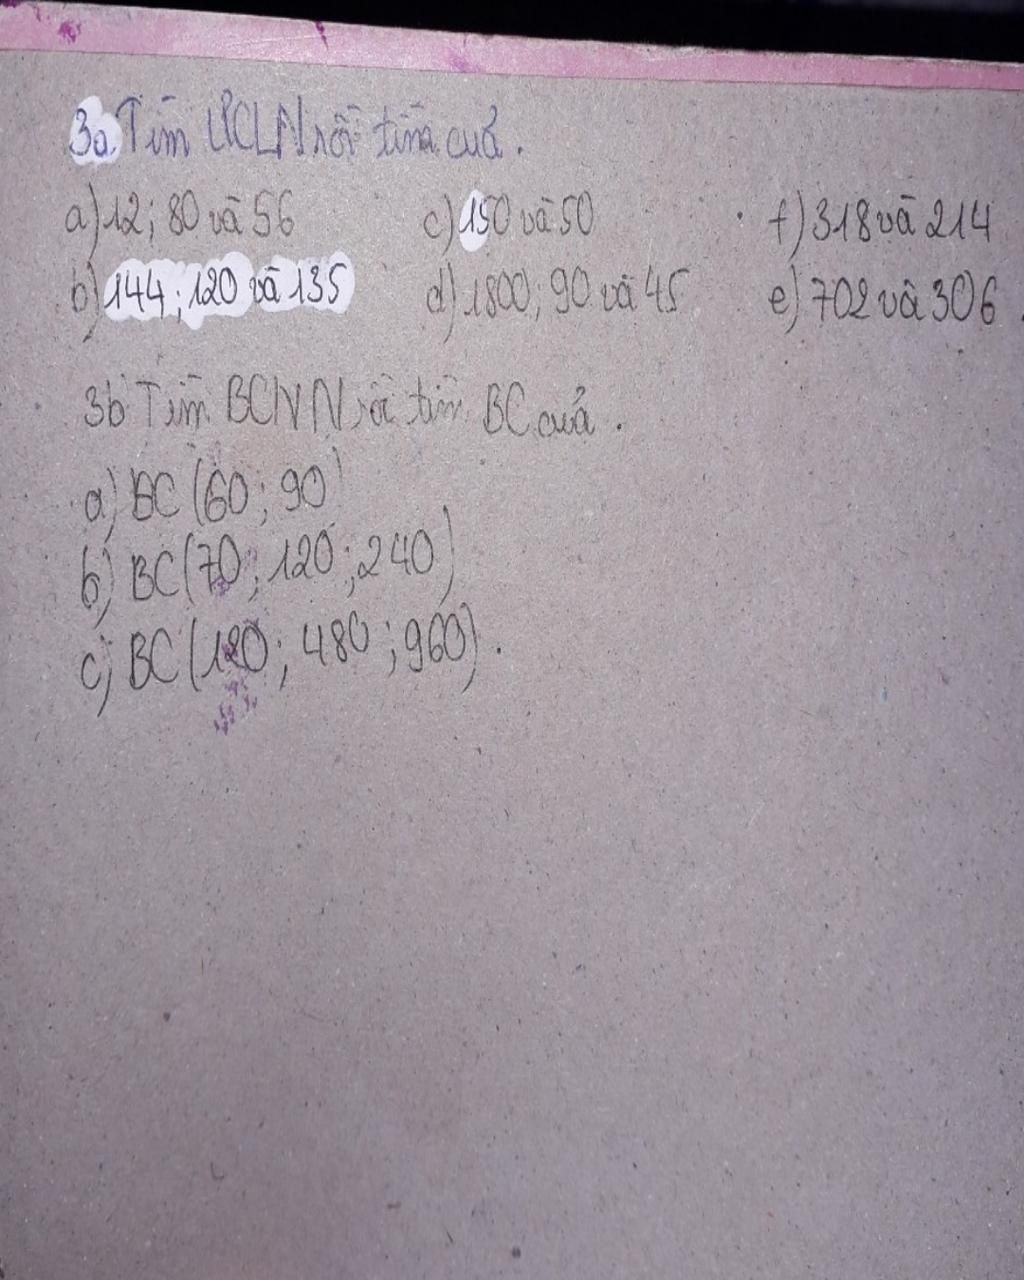 3a. Tìm ƯCLN rồi tìm của.
a) 12; 80 và 56 c) 150 và 50 f) 318 và 214
b) 144; 120 và 135 d) 1800; 90 và 45 e) 702 và 306.
3b Tìm BCNN rồi tìm BC của.
a) BC (60; 90)
b) BC (70; 120; 240)
c) BC (120; 480; 960).